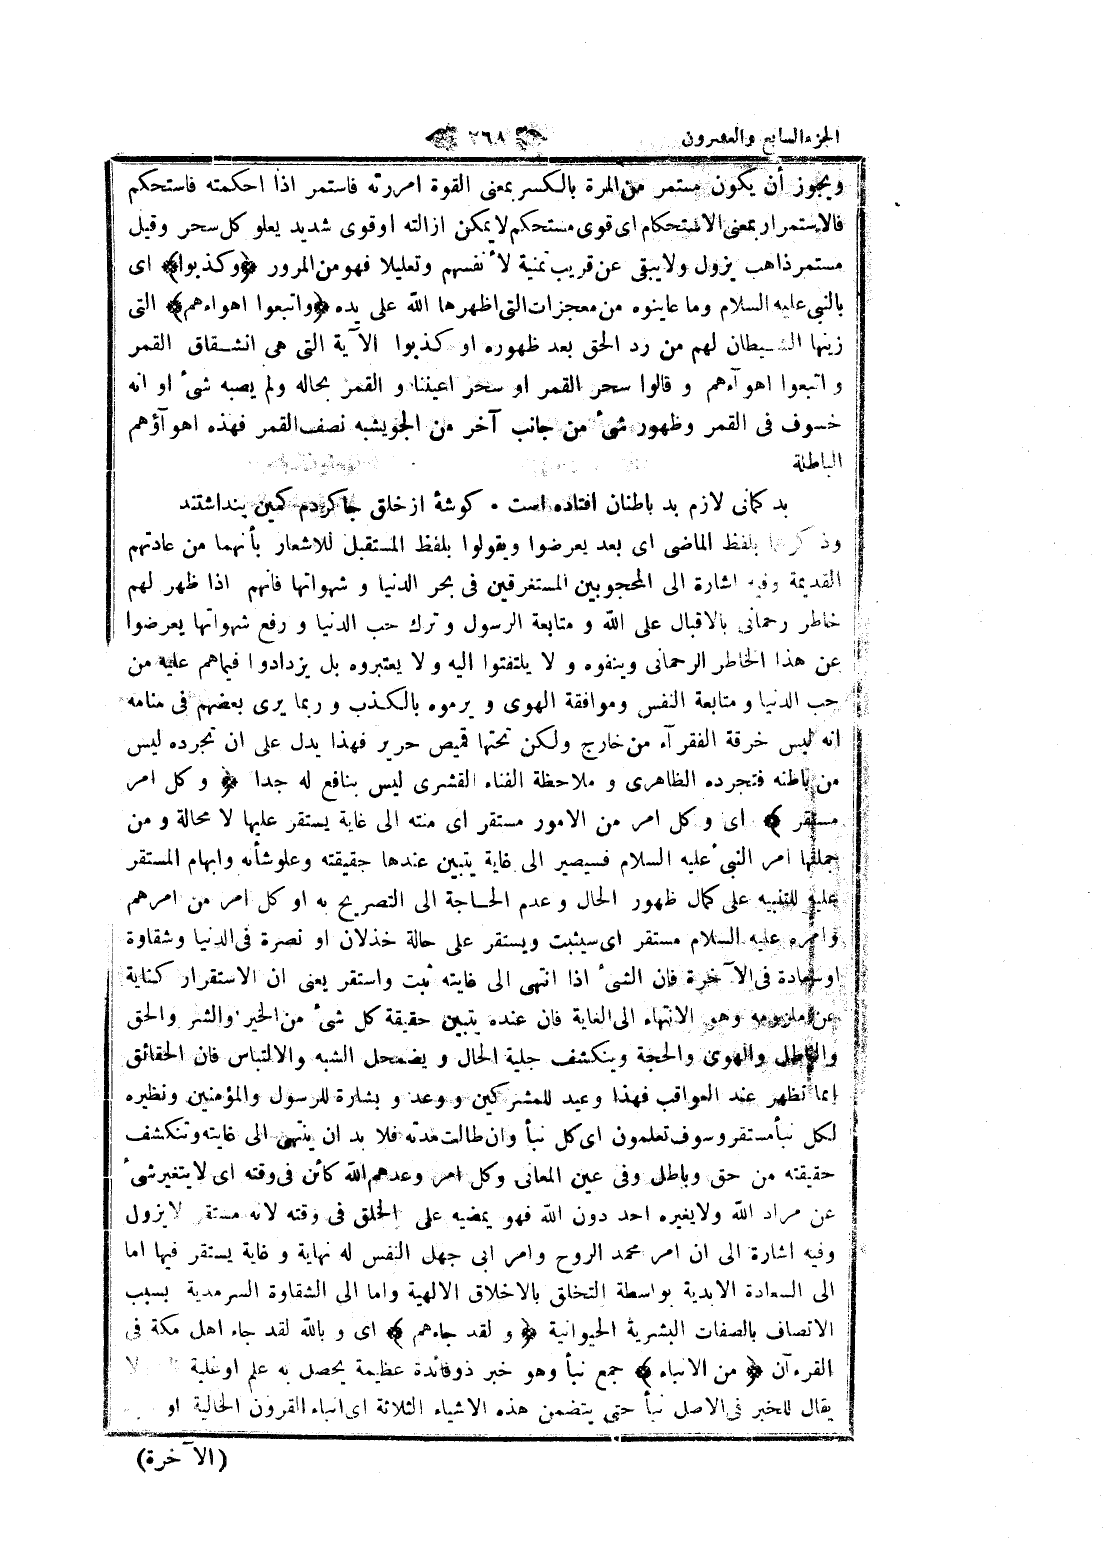 الجزء السابع والعشرون
٢٦٨
ويجوز أن يكون مستمر من المرة بالكسر بمعنى القوة امررته فاستمر اذا احكمته فاستحكم
فالاستمرار بمعنى الاستحكام اى قوى مستحكم لا يمكن ازالته او قوى شديد يعلو كل سحر وقيل
مستمر ذاهب يزول ولا يبقى عن قريب تمنية لأنفسهم وتعليلا فهو من المرور ﴿وكذبوا﴾ اى
بالنبى عليه السلام وما عاينوه من معجزات التى اظهرها الله على يده ﴿واتبعوا اهواءهم﴾ التى
زينها الشيطان لهم من رد الحق بعد ظهوره او كذبوا الآية التى هى انشقاق القمر
و اتبعوا اهوآءهم و قالوا سحر القمر او سحر اعيننا و القمر بحاله ولم يصبه شىء او انه
خسوف فى القمر وظهور شىء من جانب آخر من الجو يشبه نصف القمر فهذه اهوآؤهم
الباطلة
بد كمانى لازم بد باطنان افتاده است • كوشهٔ از خلق جا كردم كمين پنداشتند
وذكرهما بلفظ الماضى اى بعد يعرضوا ويقولوا بلفظ المستقبل للاشعار بأنهما من عادتهم
القديمة وفيه اشارة الى المحجوبين المستغرقين فى بحر الدنيا و شهواتها فانهم اذا ظهر لهم
خاطر رحمانى بالاقبال على الله و متابعة الرسول و ترك حب الدنيا و رفع شهواتها يعرضوا
عن هذا الخاطر الرحمانى وينفوه و لا يلتفتوا اليه و لا يعتبروه بل يزدادوا فيما هم عليه من
حب الدنيا و متابعة النفس وموافقة الهوى و يرموه بالكذب و ربما يرى بعضهم فى منامه
انه ليس خرقة الفقرآء من خارج ولكن تحتها قميص حرير فهذا يدل على ان تجرده ليس
من باطنه فتجرده الظاهرى و ملاحظة الفناء القشرى ليس بنافع له جدا ﴿ و كل امر
مستقر ﴾ اى و كل امر من الامور مستقر اى منته الى غاية يستقر عليها لا محالة و من
جملتها امر النبى عليه السلام فسيصير الى غاية يتبين عندها حقيقته وعلو شأنه وابهام المستقر
عليه للتنبيه على كمال ظهور الحال و عدم الحاجة الى التصريح به او كل امر من امرهم
وامره عليه السلام مستقر اى سيثبت ويستقر على حالة خذلان او نصرة فى الدنيا وشقاوة
اوسعادة فى الآخرة فان الشىء اذا انتهى الى غايته ثبت واستقر يعنى ان الاستقرار كناية
عن ملزومه وهو الانتهاء الى الغاية فان عنده يتبين حقيقة كل شىء من الخير والشر والحق
والباطل والهوى والحجة وينكشف جلية الحال و يضمحل الشبه والالتباس فان الحقائق
انما تظهر عند العواقب فهذا وعيد للمشركين و وعد و بشارة للرسول والمؤمنين ونظيره
لكل نبأ مستقر وسوف تعلمون اى كل نبأ وان طالت مدته فلا بد ان ينتهى الى غايته وتنكشف
حقيقته من حق وباطل وفى عين المعانى وكل امر وعدهم الله كائن فى وقته اى لا يتغير شىء
عن مراد الله ولا يغيره احد دون الله فهو يمضيه على الخلق فى وقته لانه مستقر لا يزول
وفيه اشارة الى ان امر محمد الروح وامر ابى جهل النفس له نهاية و غاية يستقر فيها اما
الى السعادة الابدية بواسطة التخلق بالاخلاق الالهية واما الى الشقاوة السرمدية بسبب
الاتصاف بالصفات البشرية الحيوانية ﴿ و لقد جاءهم ﴾ اى و بالله لقد جاء اهل مكة فى
القرءآن ﴿ من الانباء ﴾ جمع نبأ وهو خبر ذو فائدة عظيمة يحصل به علم او غلبة لا
يقال للخبر فى الاصل نبأ حتى يتضمن هذه الاشياء الثلاثة اى انباء القرون الخالية او
(الآخرة)